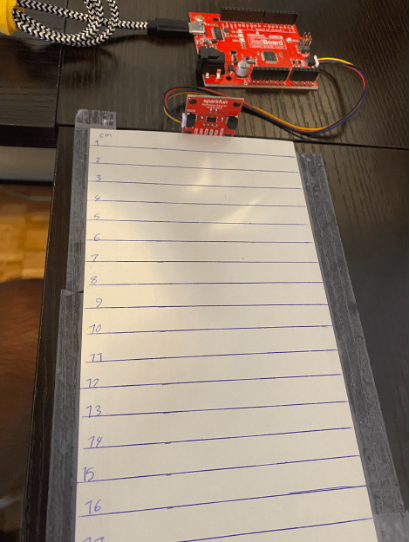 RedBoard
sparkfun
cm
1
2
3
4
5
6
7
8
9
10
11
12
13
14
15
16
17